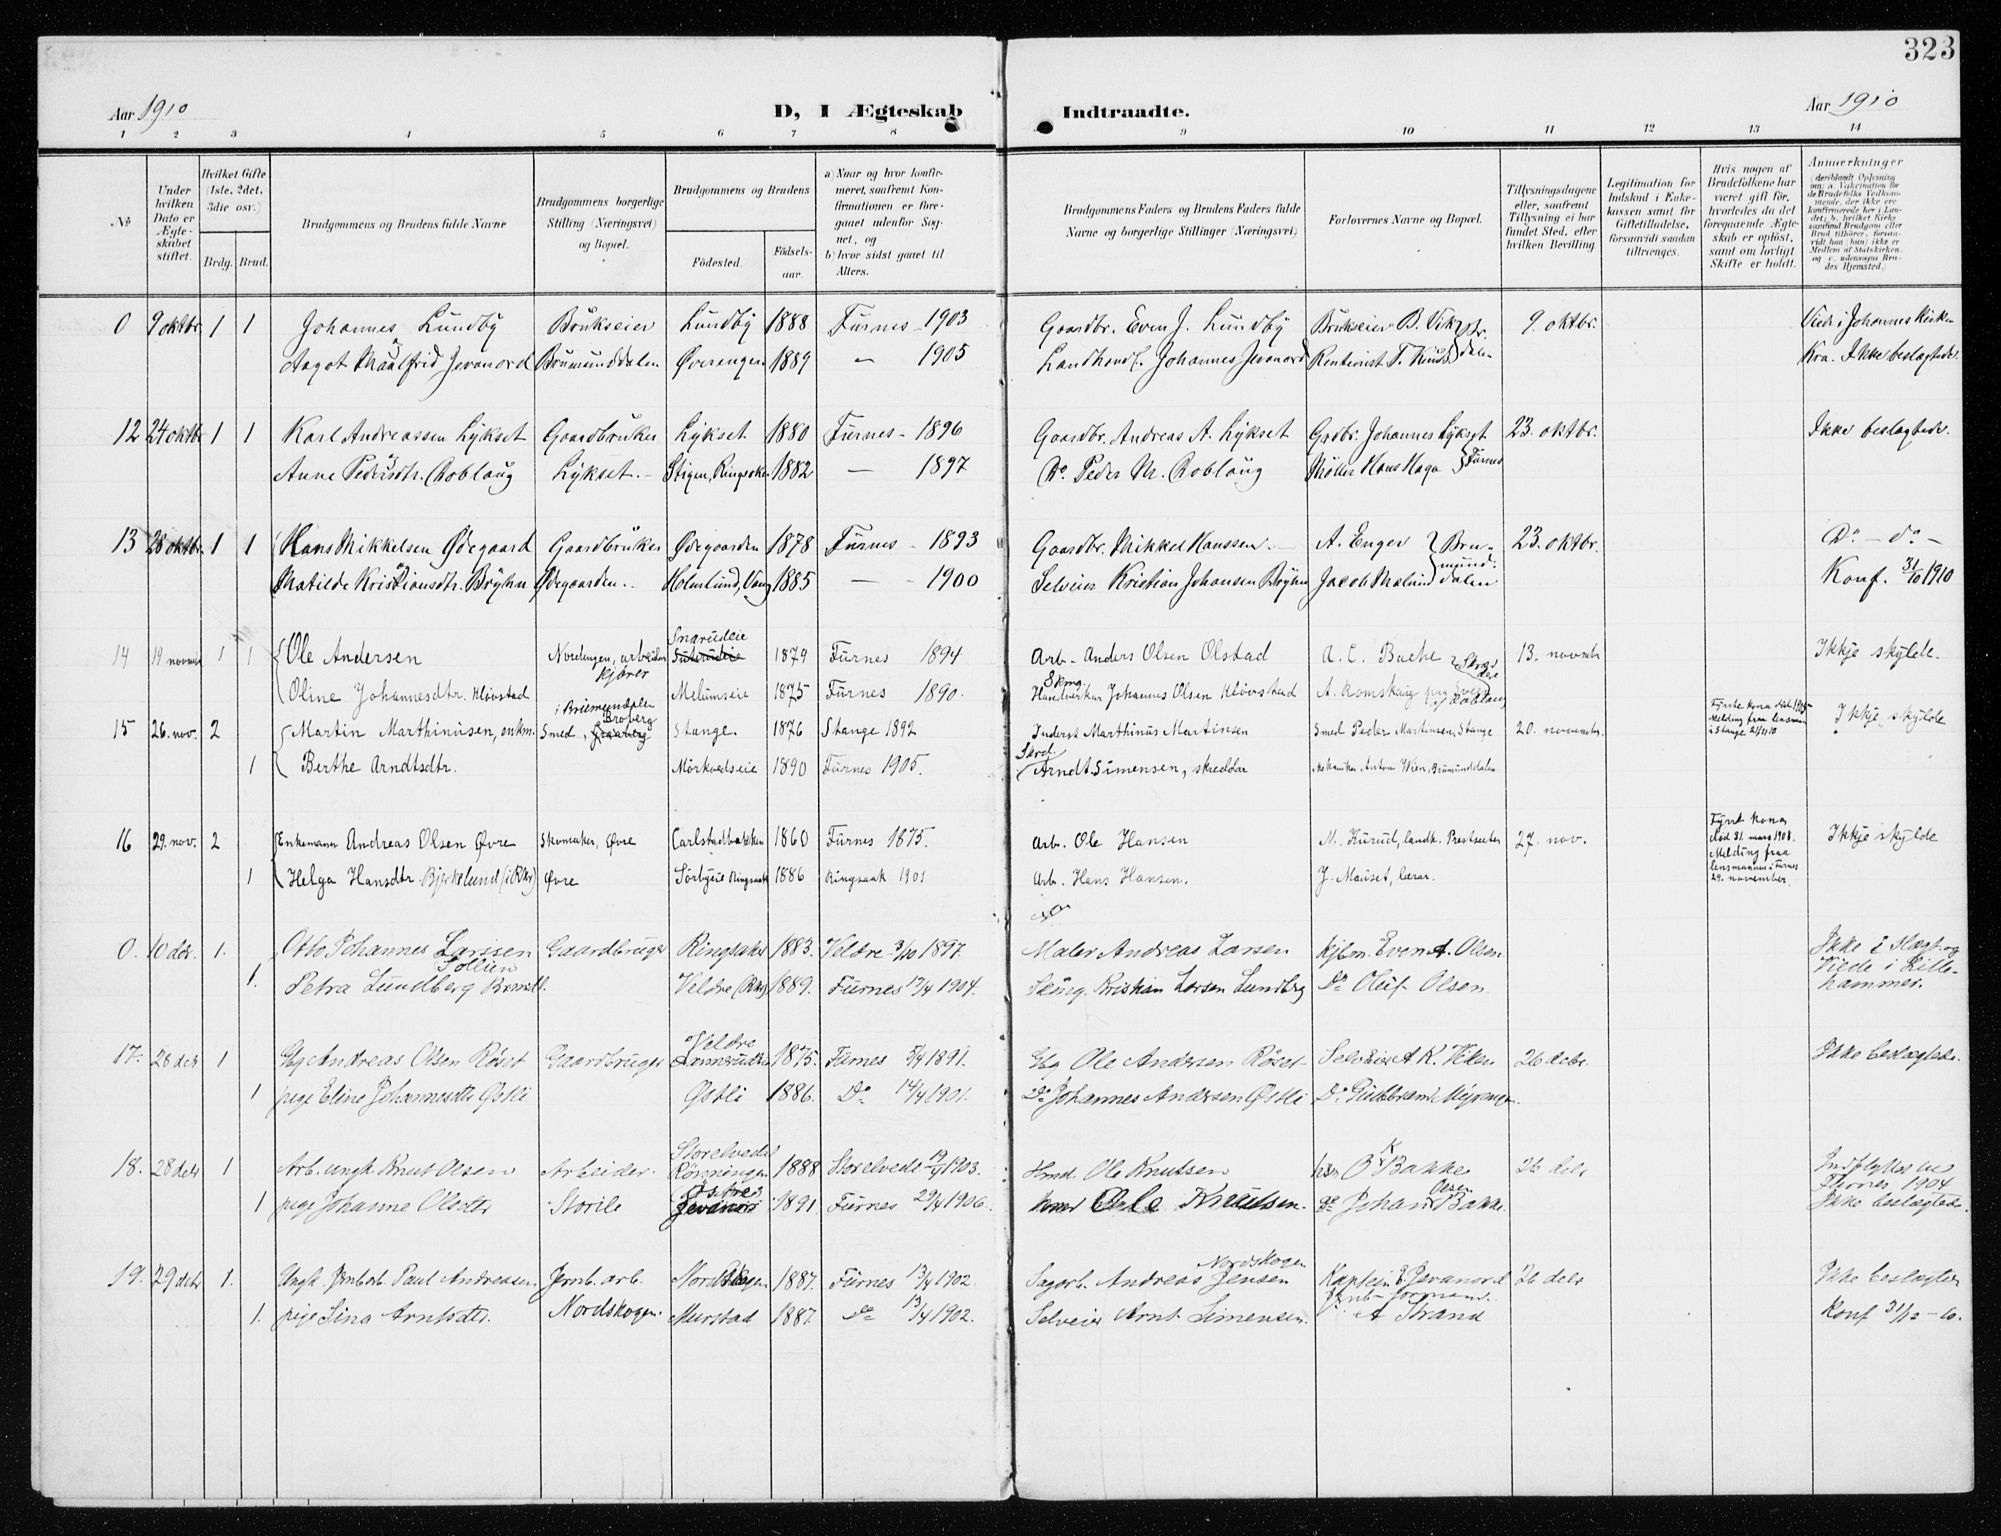 323
Aar 1910 D, I Ægteskab Indtraadte. Aar 1910
1 2 3 4 5 6 7 8 9 10 11 12 13 14
№
Under hvilken Dato er Ægteskabet stiftet.
Hvilket Gifte (1ste, 2det, 3die osv.)
Brdg. Brud.
Brudgommens og Brudens fulde Navne
Brudgommens borgerlige Stilling (Næringsvei) og Bopæl.
Brudgommens og Brudens
Fødested. Fødselsaar.
a) Naar og hvor konfirmeret, saafremt Konfirmationen er foregaaet udenfor Sognet, og
b) hvor sidst gaaet til Alters.
Brudgommens Faders og Brudens Faders fulde Navne og borgerlige Stillinger (Næringsvei)
Forlovernes Navne og Bopæl.
Tillysningsdagene eller, saafremt Tillysning ei har fundet Sted, efter hvilken Bevilling.
Legitimation for Indskud i Enkekassen samt for Giftetilladelse, forsaavidt saadan tiltrænges.
Hvis nogen af Brudefolkene har været gift før, hvorledes da det foregaaende Ægteskab er opløst, samt om lovligt Skifte er holdt.
Anmærkninger (deriblandt Oplysning om: a. Vakcination for de Brudefolks Vedkommende, der ikke ere konfirmerede her i Landet; b. hvilket Kirkesamfund Brudgom eller Brud tilhører, forsaavidt han (hun) ikke er Medlem af Statskirken, og c. udensogns Brudes Hjemsted.)
0 9 oktbr. 1 1 Johannes Lundby Brukseier Lundby 1888 Furnes - 1903 Gaardbr. Even J. Lundby Brukseier B. Vik 9. oktbr. Viede i Johannes kirken
Aagot Maalfrid Jevanord Brumunddalen Øverengen 1889 — 1905 Landhandl. Johannes Jevanord Rentenist T. Kra. Ikke beslægtede.
12 24 oktbr 1 1 Karl Andreassen Lykset Gaardbruker Lykset 1880 Furnes - 1896 Gaardbr. Andreas A. Lykset Grdbr. Johannes Lykset 23. oktbr. Ikke beslegtede.
Anne Pedersdtr. Lykset. - Stigen, Ringsaker 1882 — 1897 Do Peder M. Møller Hans Haga Furnes
13 28 oktbr. 1 1 Hans Mikkelsen Ødegaard Gaardbruker Ødegaarden 1878 Furnes - 1893 Gaardbr. Mikkel Hanssen. A. Enger Brumund- 23. oktbr. Do - do -
Matilde Kristiansdtr. Bryhn Ødegaarden. Holmlund, Vang 1885 — 1900 Selveier Kristian Johansen Bryhn Jacob Mælum dalen Konf. 31/10 1910
14 19 novmbr 1 1 Ole Andersen Nordengen, arbeider kjører Snarudeie 1879 Furnes 1894 Arb. Anders Olsen Olstad A. C. Bache 13. novmbr Ikkje skylde.
Oline Johannesdtr. Kløvstad Melumseie 1875 Furnes 1890. Skmg. Handverkar Johannes Olsen Kløvstad A. Romskaug
15 26. nov. 2 Martin Marthinusen, enkm. Smed, i Brumunddalen Broberg Stange 1876 Stange 1892 Inderst Marthinus Martinsen Smed Peder Martinsen, Stange 20. november. Fyrste kona død Melding fraa lensmann i Stange Ikkje skylde
1 Berthe Arndtsdtr. Mørkvedseie 1890 Furnes 1905. Skrd. Arndt Simensen, skreddar Mekaniker Anton Wien, Brumunddalen
16 29. nov. 2 Enkemann Andreas Olsen Øvre Skomaker, Øvre Carlstadbakken 1860 Furnes 1875. Arb. Ole Hansen M. Kurud, landh. Prestsæter 27. nov. Fyrst kona død 31. mars 1908. Melding fraa lensmannen i Furnes 29. november. Ikkje skylde
1 Helga Hansdtr. Bjerkelund (i Rkr) Øvre Ringsak 1886 Ringsak 1901 Arb. Hans Hansen. J. Mauset, lærar.
0. 10 dcbr. 1. Otto Johannes Larssen Sollien Gaardbruger Ringsaker 1883. Veldre 3/10 1897. Maler Andreas Larsen kjbm. Even A. Olsen Ikke i Slægt og Viede i Lillehammer.
1. Petra Lundberg Veldre (Rkr.) 1889. Furnes 17/4 1904. Kristian Larsen Lundbrg Do Oluf Olsen
17. 28 dcbr 1 Gbg Andreas Olsen Røset Gaardbruger Veldre 1875. Furnes 5/4 1891. Gbg Ole Andersen Røset Selveier A. K. 26 dcbr. Ikke beslægtede.
1 pige Eline Johannesdtr Østli Østli 1886. Do 14/4 1901. Do Johannes Andersen Østli Do Gudbrand Myrengen.
18. 28 dcbr 1 Arb. ungk. Knut Olsen Arbeider. Storelvedal Rønningen 1888 Storelvedal 1903. Hmd. Ole Knutsen O K Bakke 26 dcbr Indflyttet til Furnes 1904
1 pige Johanne Olsdtr Storile Østre Jevanord 1891 Furnes 29/4 1906. Hmd Ole Knutsen. do Johan Olsen Bakke. Ikke beslægtede.
19. 29 dcbr 1. Ungk. Jernbarb. Paul Andreasen Jernb. arb. Nordskogen 1887. Furnes 13/4 1902. Sagarb. Andreas Jensen Nordskogen Kaptein E. Jevanord 26 dcbr Ikke beslægtede
1. pige Lina Arntsdtr. Nordskogen Murstad 1887. do 13/4 1902. Selveier Arnt Simensen. Jernb. formand A Strand Konf 31/12 - 10.